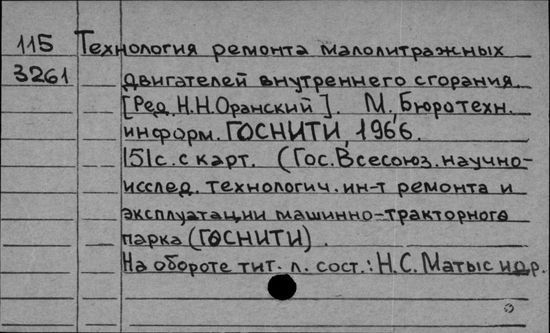 115 Технология ремонта малолитражных
3261 двигателей внутреннего сгорания.
[Ред. Н.Н.Оранский]. М., Бюро техн.
информ. ГОСНИТИ, 1966.
151с. с карт. (Гос. Всесоюз. научно-
исслед. технологич. ин-т ремонта и
эксплуатации машинно-тракторного
парка (ГОСНИТИ).
На обороте тит. л. сост.: Н.С. Матыс и др.